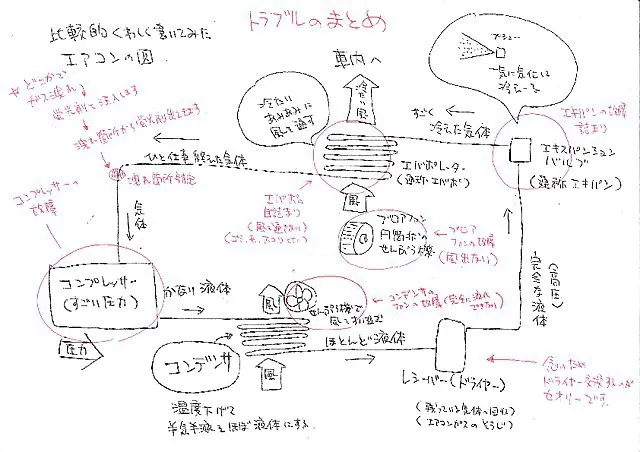 トラブルのまとめ
比較的くわしく書いてみた
エアコンの図
※どこかで
ガス漏れ
蛍光剤を注入します
漏れ箇所から蛍光剤出てきます
車内へ
冷たい風
冷たい
あみあみに
風を通す
ブシュー
一気に気化して
冷え〜る
すごく
冷えた気体
エキパンの故障
詰まり
エキスパンション
バルブ
(通称エキパン)
ひと仕事終えた気体
漏れ箇所特定
コンプレッサーの
故障
気体
エバポの
目詰まり
(風を通さない)
エバポレーター
(通称エバポ)
風
ブロアファン
円筒状の
せんぷう機
ブロア
ファンの故障
(風出ない)
(高圧)
完全な液体
コンプレッサー
(すごい圧力)
かなり液体
圧力
風
せんぷう機で
コンデンサの
ファンの故障
コンデンサ
ほとんど液体
風
温度下げて
半気半液をほぼ液体にする
レシーバー(ドライヤー)
(残っている気体の回収)
(エアコンガスのそうじ)
念のため
ドライヤー交換するのが
セオリーです。